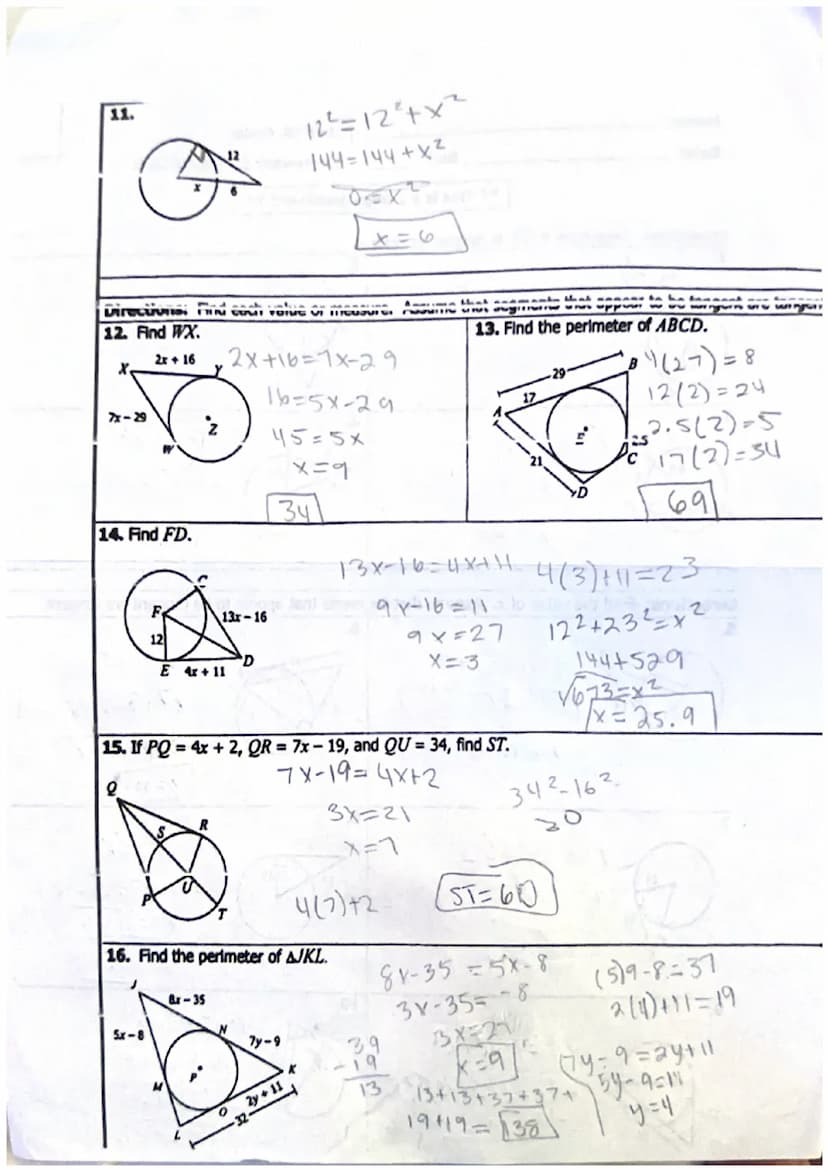 11.
12
x
6
12² = 12² + x²
144 = 144 + x²
0 = x²
x = 6
Directions: Find each value or measure. Assume that segments that appear to be tangent are tangent
12. Find WX.
2x + 16
X
Y
7x – 29
Z
W
2x+16=7x-29
16=5x-29
45=5x
x=9
34
13. Find the perimeter of ABCD.
29
B
17
A
E
2.5
C
21
D
4(2)=8
12(2)=24
2.5(2)=5
17(2)=34
69
14. Find FD.
C
F
13x – 16
12
D
E
4x + 11
13x-16=4x+11
9x-16=11
9x=27
x=3
4(3)+11=23
12²+23²=x²
144+529
√673=x²
x=25.9
15. If PQ = 4x + 2, QR = 7x – 19, and QU = 34, find ST.
Q
S
R
U
P
T
7x-19=4x+2
3x=21
x=7
4(7)+2
34²-16²
30
16. Find the perimeter of ΔJKL.
J
8x – 35
5x – 8
N
7y – 9
K
P
M
2y + 11
O
L
32
8x-35=5x-8
3x-35=-8
3x=27
x=9
(5)9-8=37
2(4)+11=19
7y-9=2y+11
5y-9=11
y=4
-19
13
13+13+37+37+
19+19=138